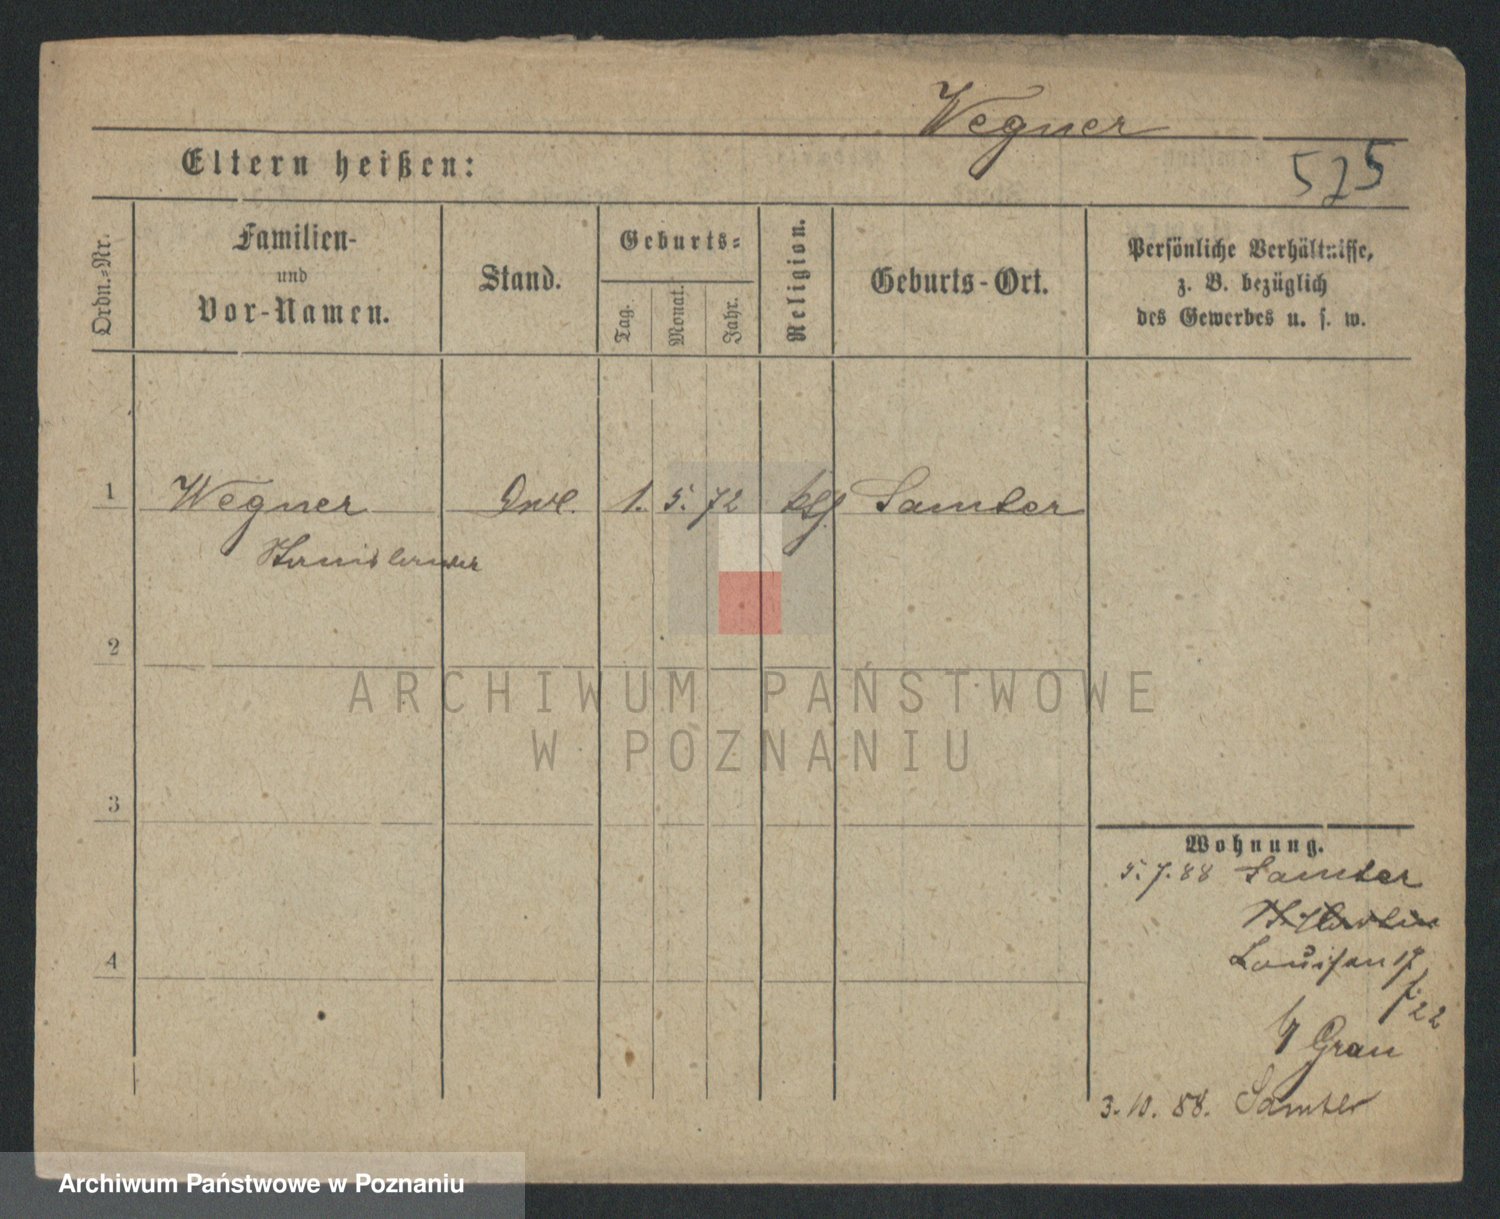 Wegner
Eltern heißen:
525
Ordn.=Nr.
Familien-
und
Vor-Namen.
Stand.
Geburts=
Tag.
Monat.
Jahr.
Religion.
Geburts-Ort.
Persönliche Verhältnisse,
z. B. bezüglich
des Gewerbes u. s. w.
1
Wegner
1. 5. 72
Samter
Stanislaus
2
ARCHIWUM PAŃSTWOWE
W POZNANIU
3
Wohnung.
5.7.88 Samter
4
Louisen 17
22
Grau
3.10.88. Samter
Archiwum Państwowe w Poznaniu